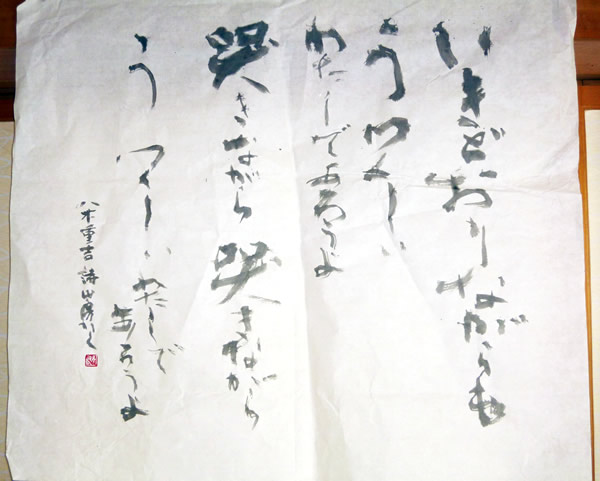 いきどおりながらも
うつくしい
わたしであろうよ
哭きながら 哭きながら
うつくしい わたしで
あろうよ
八木重吉 詩 かく